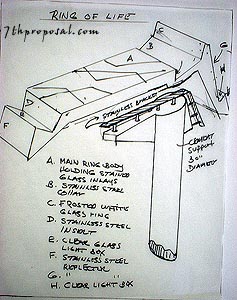 RING OF LIFE
7thproposal.com
A
B
G
H
C
B
D
E
F
STAINLESS
CEMENT
SUPPORT
30"
DIAMETER
A. MAIN RING BODY
HOLDING STAINED
GLASS INLAYS
B. STAINLESS STEEL
COLLAR
C. FROSTED WHITE
GLASS RING
D. STAINLESS STEEL
INSERT
E. CLEAR GLASS
LIGHT BOX
F. STAINLESS STEEL
REFLECTOR
G. " "
H. CLEAR LIGHT BOX